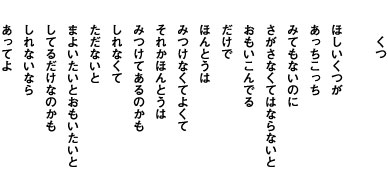 くつ
ほしいくつが
あっちこっち
みてもないのに
さがさなくてはならないと
おもいこんでる
だけで
ほんとうは
みつけなくてよくて
それかほんとうは
みつけてあるのかも
しれなくて
ただないと
まよいたいとおもいたいと
してるだけなのかも
しれないなら
あってよ